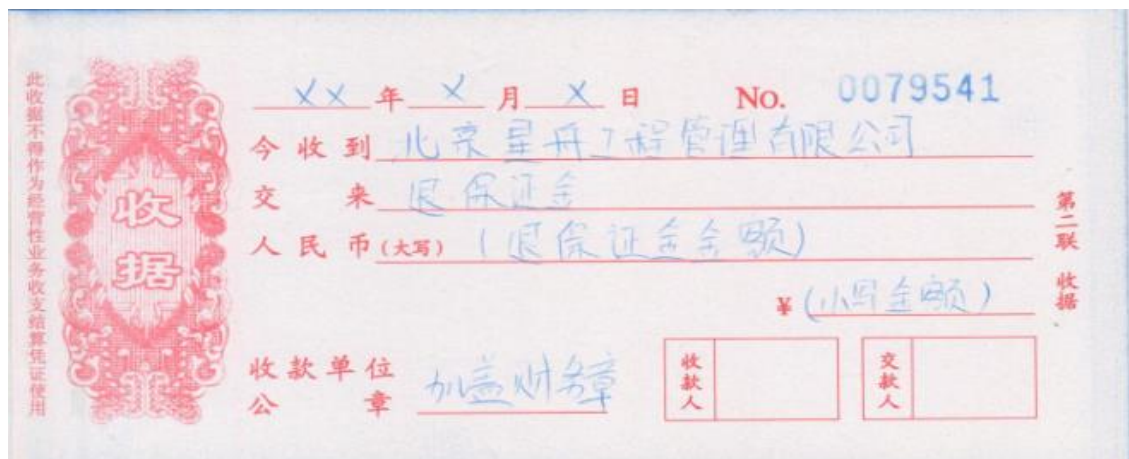 此收据不得作为经营性业务收支结算凭证使用
收据
XX年X月X日 No. 0079541
今收到北京星舟工程管理有限公司
交来退保证金
人民币(大写)(退保证金金额)
¥(小写金额)
收款单位公章 加盖财务章
收款人
交款人
第二联 收据